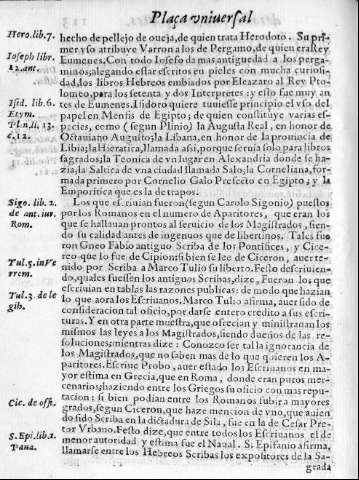 Plaça vniuersal
Hero.lib.7.
hecho de pellejo de oueja, de quien trata Herodoto. Su primer vso atribuye Varron a los de Pergamo, de quien era Rey
Ioseph libr.
12.ant.
Eumenes. Con todo Iosefo da mas antiguedad a los pergaminos; alegando estar escritos en pieles con mucha curiosidad, los libros Hebreos embiados por Eleazaro al Rey Ptolomeo, para los setenta y dos Interpretes: y esto fue muy antes de Eumenes.
Isid. lib. 6.
Etym.
Pln. li. 13.
c. 12.
Isidoro quiere tuuiesse principio el vso del
papel en Menfis de Egipto; de quien constituye varias especies, como (segun Plinio) la Augusta Real, en honor de
Octauiano Augusto; la Libana, en honor de la prouincia de
Libia; la Hieratica, llamada assi, porque seruia solo para libros
sagrados; la Teonica de vn lugar en Alexandria donde se hazia; la Saltica de vna ciudad llamada Salo; la Corneliana, formada primero por Cornelio Galo Prefecto en Egipto; y la
Emporitica que es la de trapos.
Sigo. lib. 2.
de ant. iur.
Rom.
Los que escriuian fueron (segun Carolo Sigonio) puestos
por los Romanos en el numero de Aparitores, que eran los
que se hallauan prontos al seruicio de los Magistrados, siendo su calidad antes de ingenuos que de libertinos. Tales fueron Gneo Fabio antiguo Scriba de los Pontifices, y Cicereo que lo fue de Cipion si bien se lee de Ciceron, auer tenido por Scriba a Marco Tulio su liberto.
Tul. 5. in Verrem.
Festo descriuiendo, quales fuessen los antiguos Scribas, dize, Fueron los que
escriuian en tablas las razones publicas: de modo que hazian
Tul. 3. de legib.
lo que aora los Escriuanos. Marco Tulio afirma, auer sido de
consideracion tal oficio, por darse entero credito a sus escrituras. Y en otra parte muestra, que ofrecian y ministrauan los
mismos las leyes a los Magistrados, siendo dueños de las resoluciones; mientras dize: Conozco ser tal la ignorancia de
los Magistrados, que no saben mas de lo que quieren los Aparitores. Escriue Probo, auer estado los Escriuanos en mayor estima en Grecia, que en Roma, donde eran puros mercenarios; haziendo entre los Griegos su oficio con mas reputacion:
Cic. de offi.
si bien podian entre los Romanos subir a mayores
grados, segun Ciceron, que haze mencion de vno, que auiendo sido Scriba en la dictadura de Sila, fue en la de Cesar Pretor Vrbano. Festo dize, que entre todos los Escriuanos el de
S. Epi. lib. 1.
Pana.
menor autoridad y estima fue el Naual. S. Epifanio afirma,
llamarse entre los Hebreos Scribas los expositores de la Sagrada